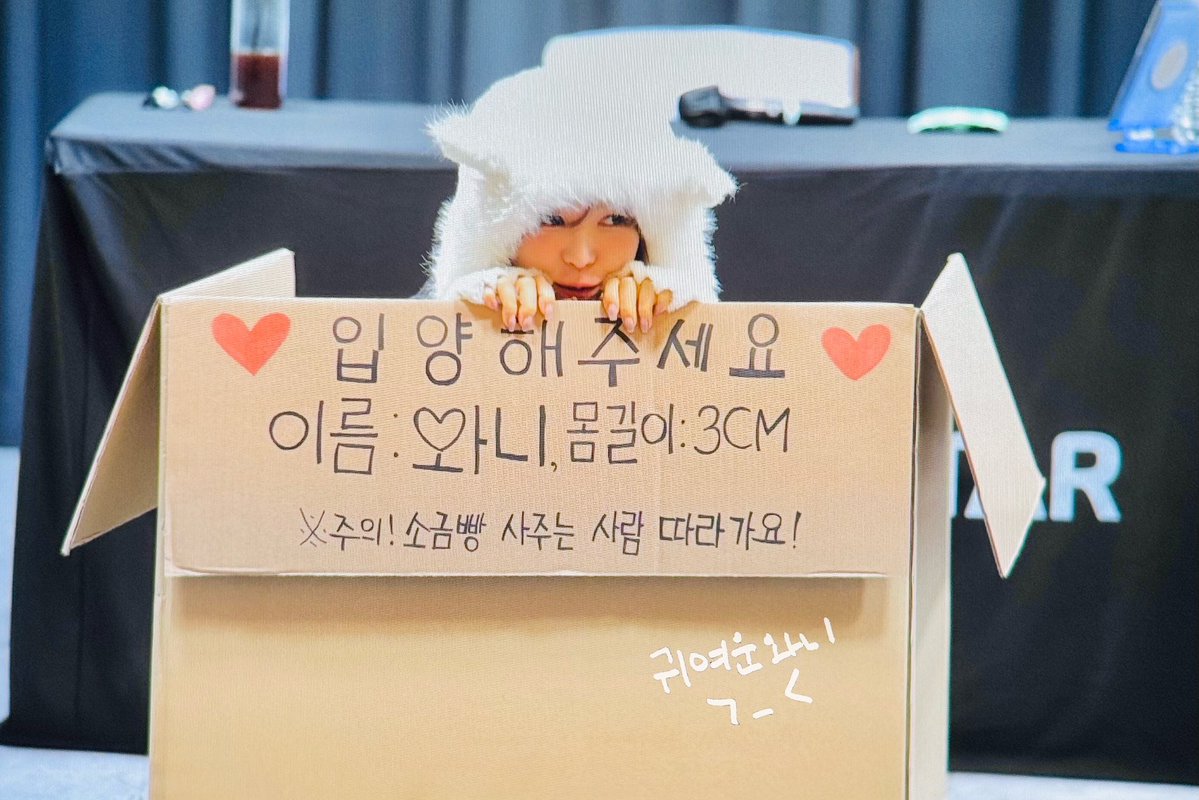 ♥ 입양해주세요 ♥
이름 : 와니, 몸길이 : 3CM
※주의! 소금빵 사주는 사람 따라가요!
TAR
귀여운 와니
ㄱ_ㄱ